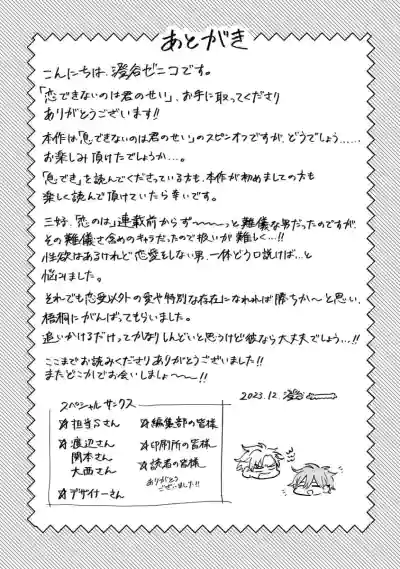 あとがき
こんにちは、澄谷ゼニコです。
「恋できないのは君のせい」、お手に取ってくださり
ありがとうございます!!
本作は「恋できないのは君のせい」のスピンオフですが、どうでしょう……
お楽しみ頂けたでしょうか…。
「恋でき」を読んでくださっている方も、本作が初めましての方も
楽しく読んで頂けていたら幸いです。
三好、「恋のは」連載前からず〜〜〜っと難儀な男だったのですが、
その難儀さ含めのキャラだったので扱いが難しく…!!
性欲はあるけれど恋愛をしない男、一体どう口説けば…と
悩みました。
それでも恋愛以外の愛や特別な存在になれれば勝ちか〜と思い、
梧桐にがんばってもらいました。
追いかけるだけってかなりしんどいと思うけど彼なら大丈夫でしょう…!!
ここまでお読みくださりありがとうございました!!
またどこかでお会いしましょ〜〜!!
2023.12. 澄谷
スペシャルサンクス
☆担当Sさん
☆渡辺さん
関本さん
大西さん
☆デザイナーさん
☆編集部の皆様
☆印刷所の皆様
☆読者の皆様
ありがとう
ございました!!